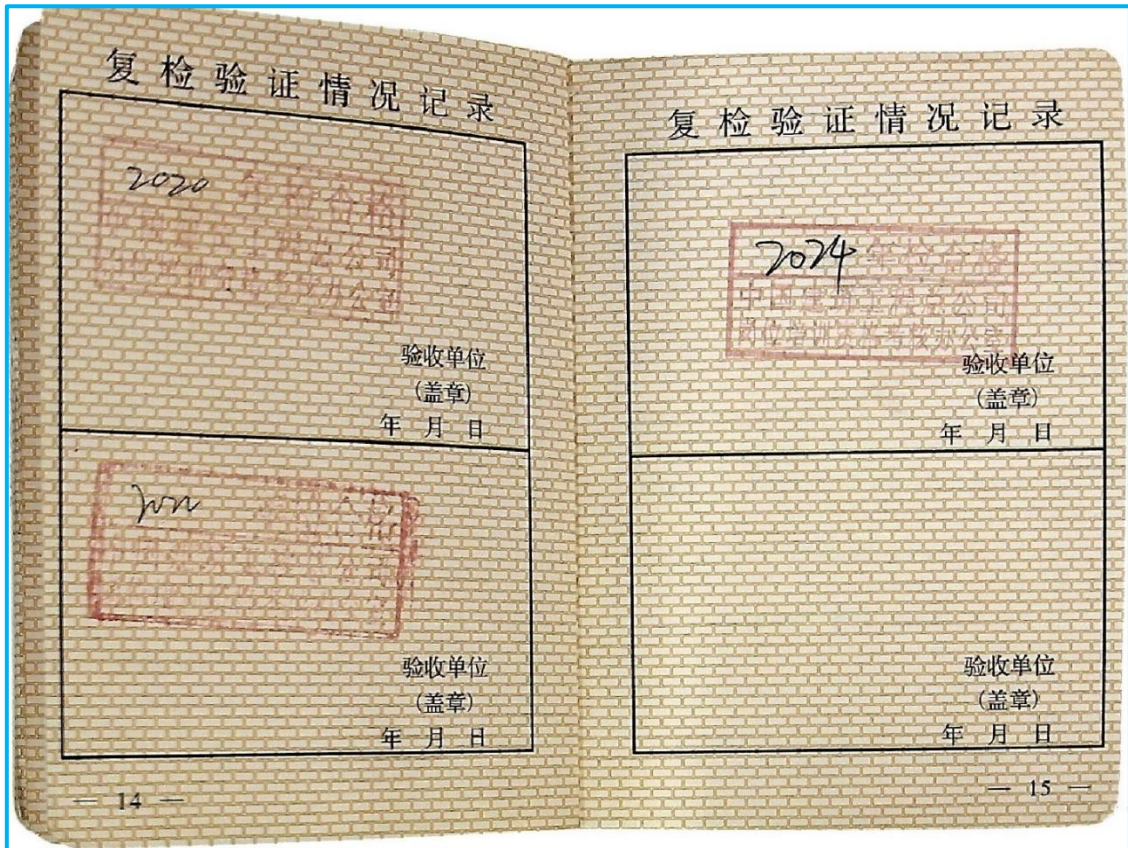 复检验证情况记录
2020 年检合格
验收单位
(盖章)
年 月 日
验收单位
(盖章)
年 月 日
— 14 —
复检验证情况记录
2024 年检合格
中国建筑工程总公司
岗位培训资格考核办公室
验收单位
(盖章)
年 月 日
验收单位
(盖章)
年 月 日
— 15 —